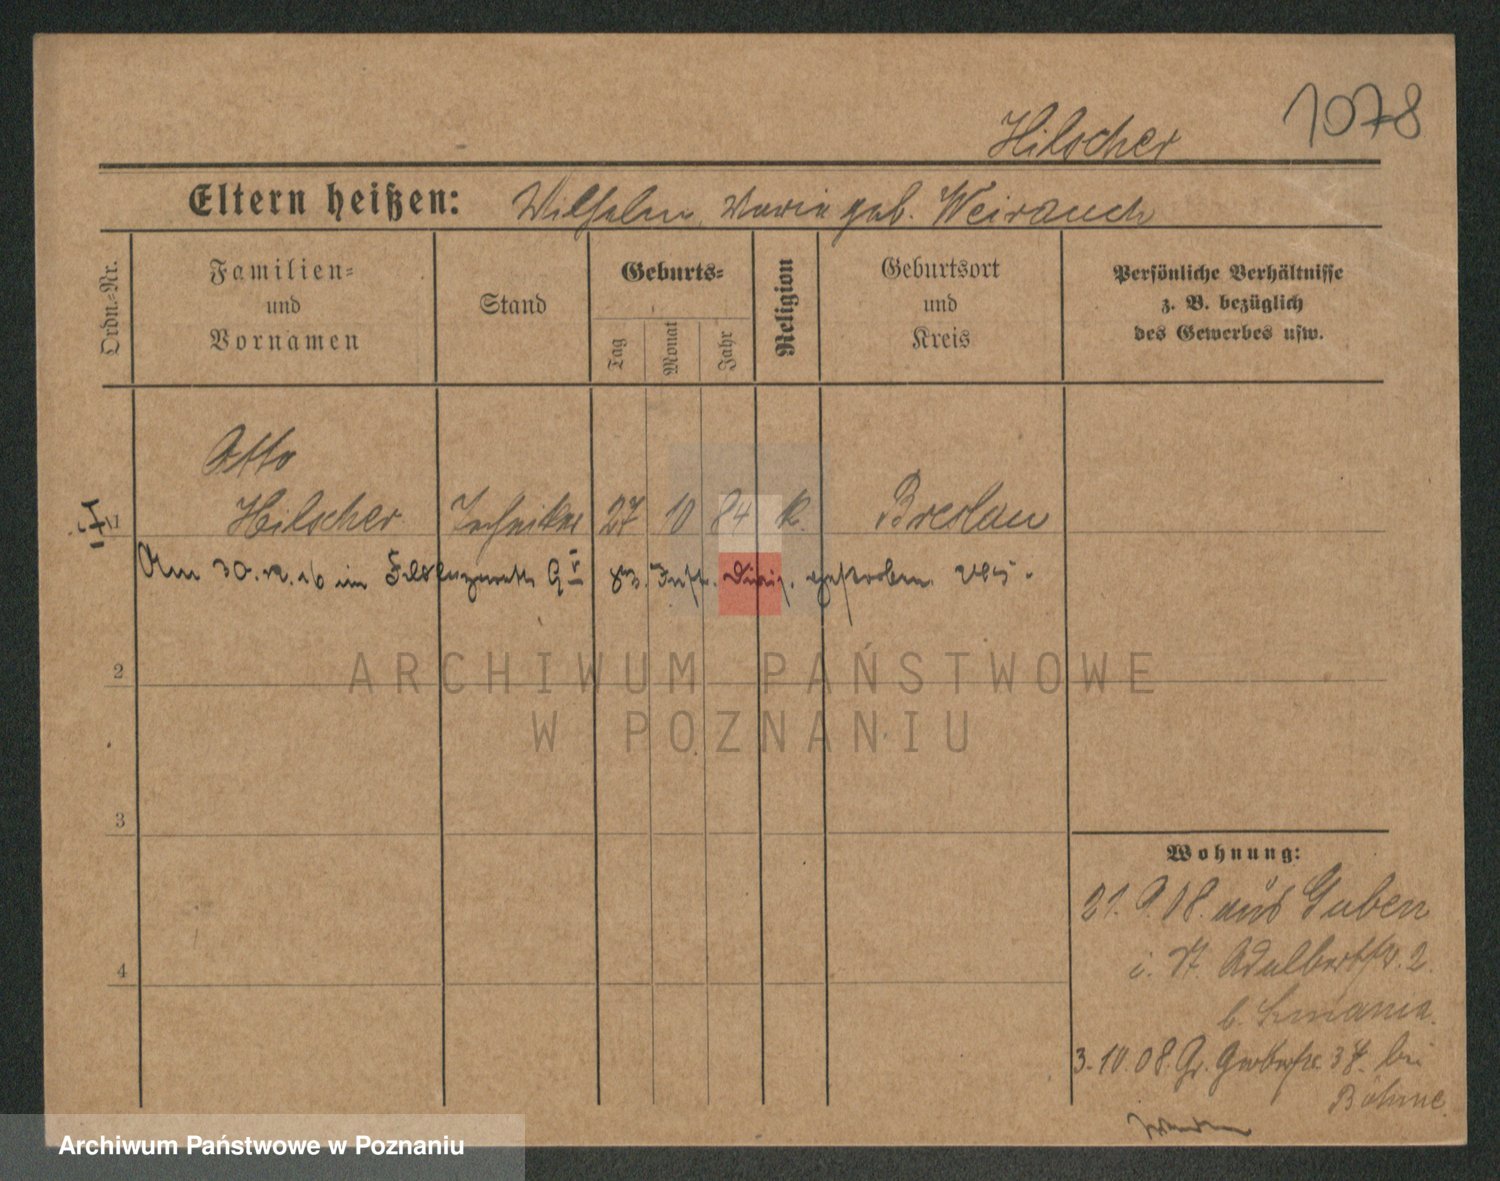 1078
Hilscher
Eltern heißen: Wilhelm, Maria geb. Weirauch
Ordn.-Nr.
Familien-
und
Vornamen
Stand
Geburts-
Tag
Monat
Jahr
Religion
Geburtsort
und
Kreis
Persönliche Verhältnisse
z. B. bezüglich
des Gewerbes usw.
Otto
1 Hilscher Techniker 27 10 84 k. Breslau
Am 30. im gestorben
2
ARCHIWUM PAŃSTWOWE
W POZNANIU
3
Wohnung:
21. 9. 08. aus Guben
4
i. St. Adalbertstr. 2.
b.
3. 10. 08. Gr. Gerberstr. bei
Böhme
Archiwum Państwowe w Poznaniu